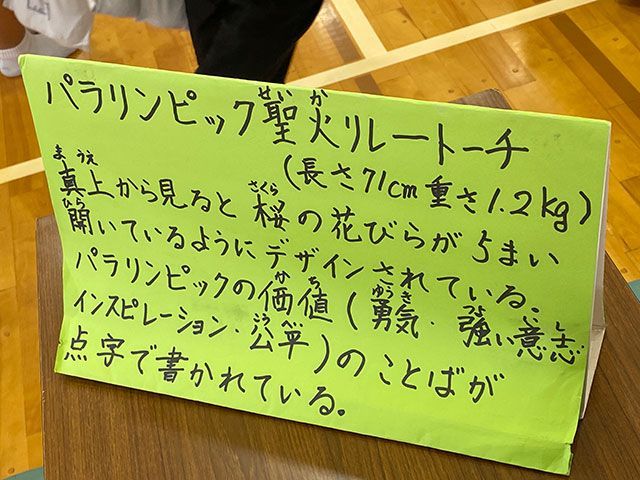 パラリンピック聖火リレートーチ
(長さ71cm 重さ1.2kg)
真上から見ると桜の花びらが5まい
開いているようにデザインされている。
パラリンピックの価値(勇気・強い意志・
インスピレーション・公平)のことばが
点字で書かれている.